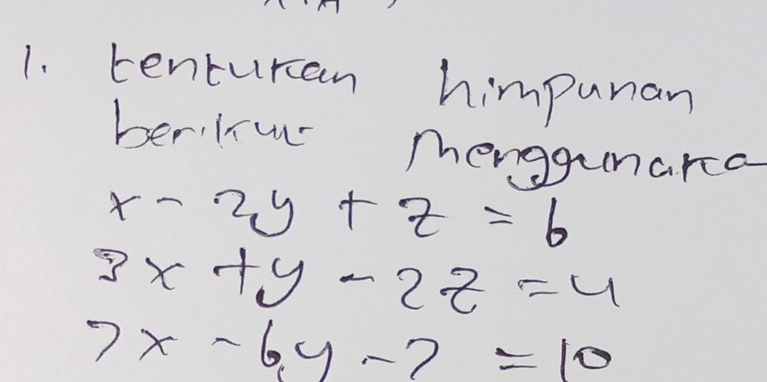 1. tentukan himpunan
berikut menggunaka
x - 2y + z = 6
3x + y - 2z = 4
7x - 6y - z = 10